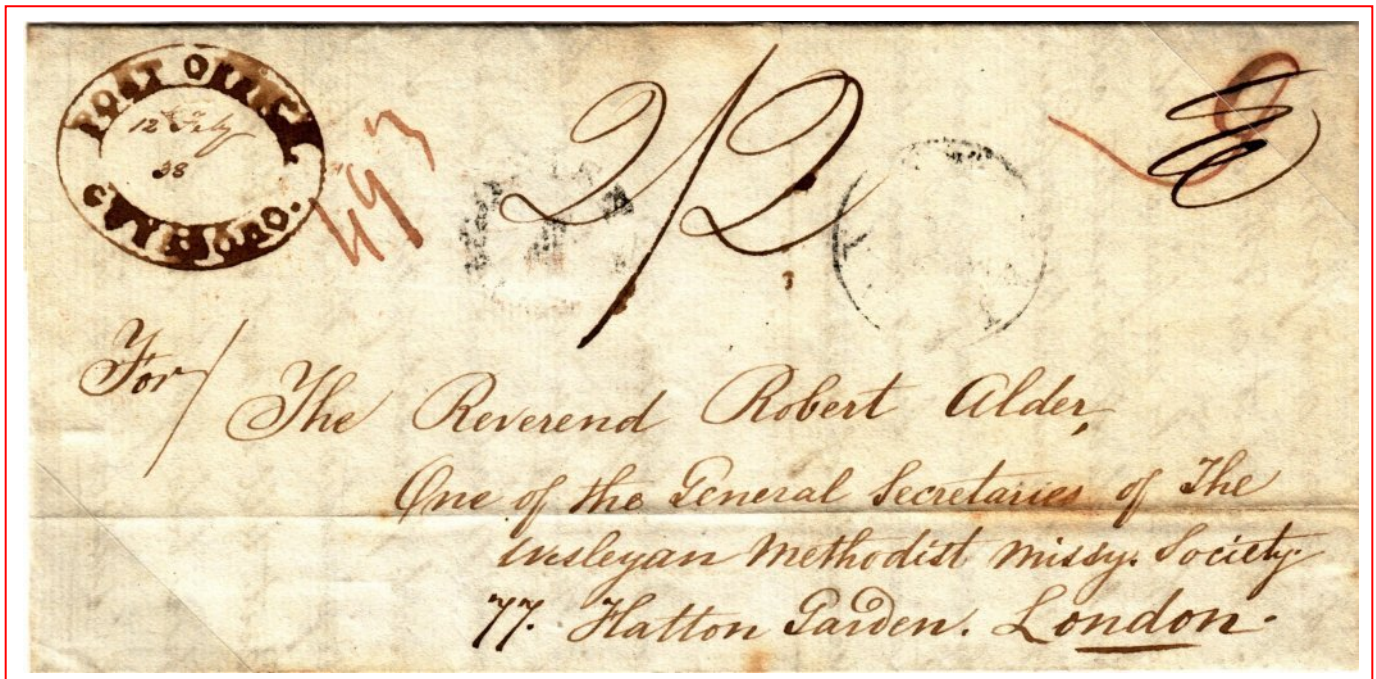 POST OFFICE
12 Feby
38
2/2
For/
The Reverend Robert Alder,
One of the General Secretaries of The
Wesleyan Methodist Missy. Society.
77. Hatton Garden. London.